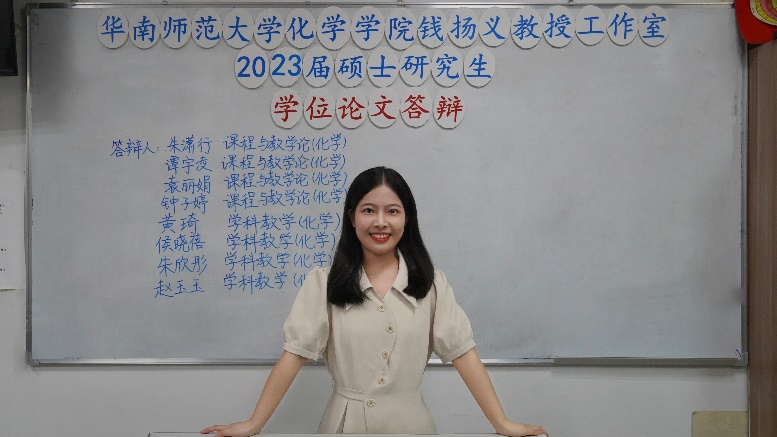 华南师范大学化学学院钱扬义教授工作室
2023届硕士研究生
学位论文答辩
答辩人：朱潇行 课程与教学论(化学)
谭宇凌 课程与教学论(化学)
袁丽娟 课程与教学论(化学)
钟子婷 课程与教学论(化学)
黄琦 学科教学(化学)
侯晓蓓 学科教学(化学)
朱欣彤 学科教学(化学)
赵玉玉 学科教学(化